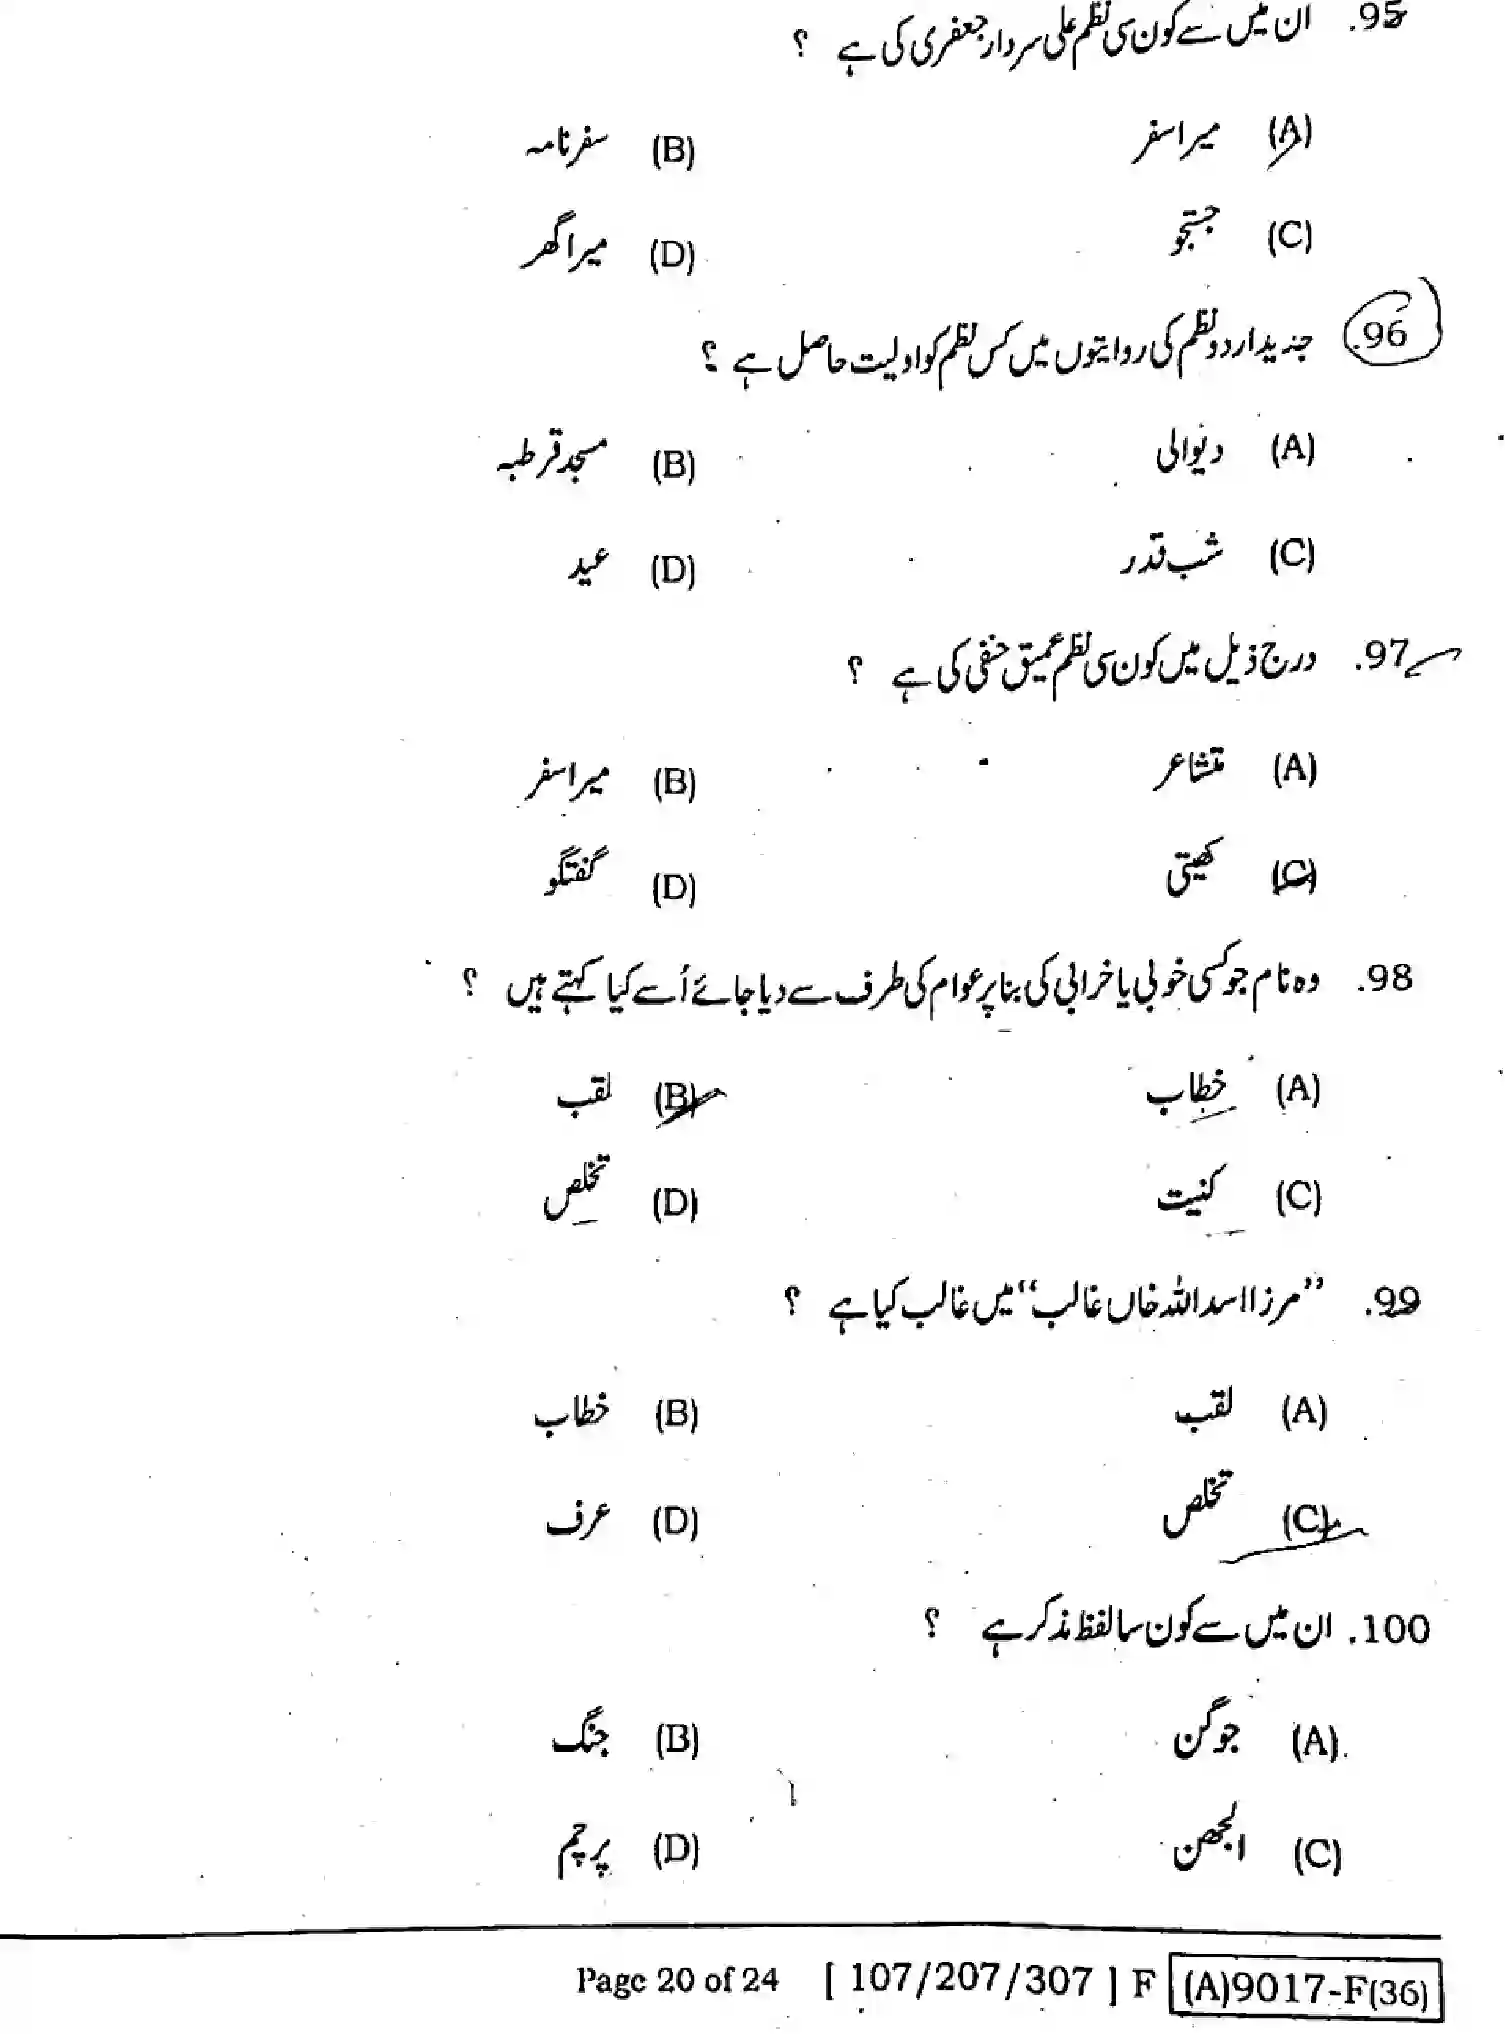 95. ان میں سے کون سی نظم علی سردار جعفری کی ہے ؟
(A) میرا سفر (B) سفر نامہ
(C) جستجو (D) میرا گھر
96. جدید اردو نظم کی روایتوں میں کس نظم کو اولیت حاصل ہے ؟
(A) دیوالی (B) مسجد قرطبہ
(C) شب قدر (D) عید
97. درج ذیل میں کون سی نظم عمیق حنفی کی ہے ؟
(A) متشاعر (B) میرا سفر
(C) کھیتی (D) گفتگو
98. وہ نام جو کسی خوبی یا خرابی کی بنا پر عوام کی طرف سے دیا جائے اُسے کیا کہتے ہیں ؟
(A) خطاب (B) لقب
(C) کنیت (D) تخلص
99. ”مرزا اسد اللہ خاں غالب“ میں غالب کیا ہے ؟
(A) لقب (B) خطاب
(C) تخلص (D) عرف
100. ان میں سے کون سا لفظ مذکر ہے ؟
(A) جوگن (B) جنگ
(C) الجھن (D) پرچم
Page 20 of 24 [ 107/207/307 ] F (A)9017-F(36)